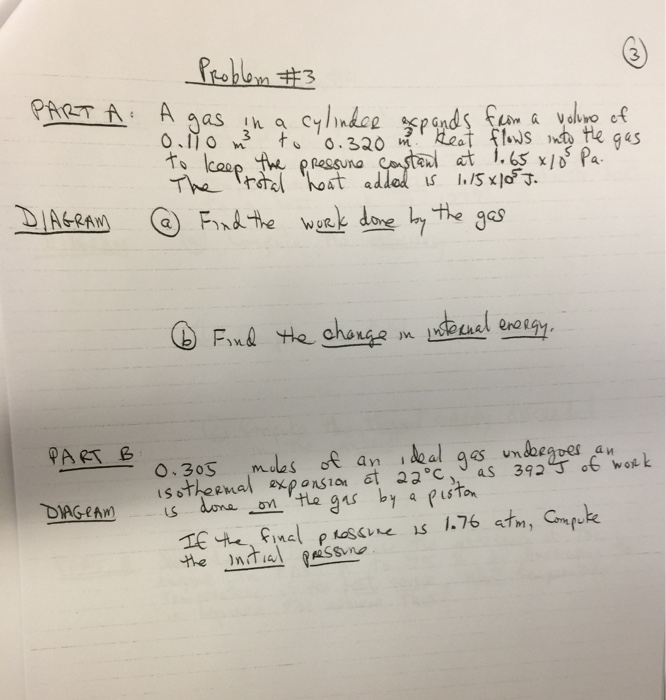 3
Problem #3
PART A: A gas in a cylinder expands from a volume of
0.110 m³ to 0.320 m³. Heat flows into the gas
to keep the pressure constant at 1.65 x10⁵ Pa.
The total heat added is 1.15x10⁵ J.
DIAGRAM (a) Find the work done by the gas
(b) Find the change in internal energy.
PART B 0.305 moles of an ideal gas undergoes an
isothermal expansion at 22°C, as 392 J of work
DIAGRAM is done on the gas by a piston
If the final pressure is 1.76 atm, Compute
the initial pressure.